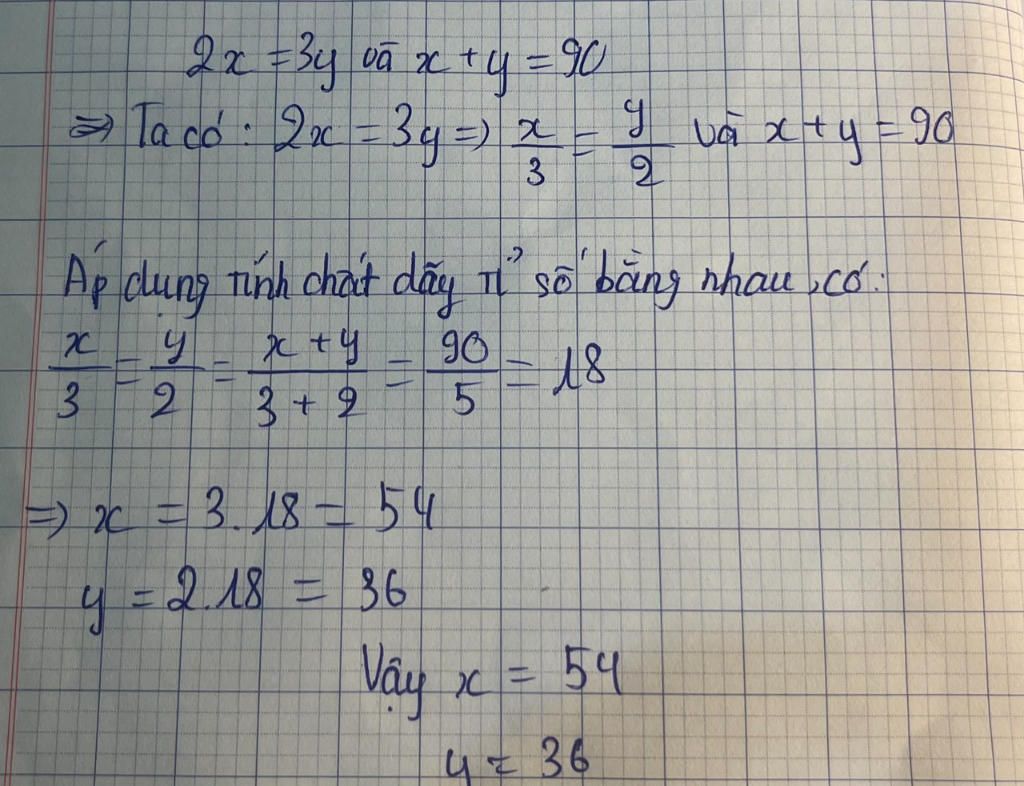 2x = 3y và x + y = 90
=> Ta có: 2x = 3y => x/3 = y/2 và x + y = 90
Áp dụng tính chất dãy tỉ số bằng nhau, có:
x/3 = y/2 = x + y/3 + 2 = 90/5 = 18
=> x = 3.18 = 54
y = 2.18 = 36
Vậy x = 54
y = 36